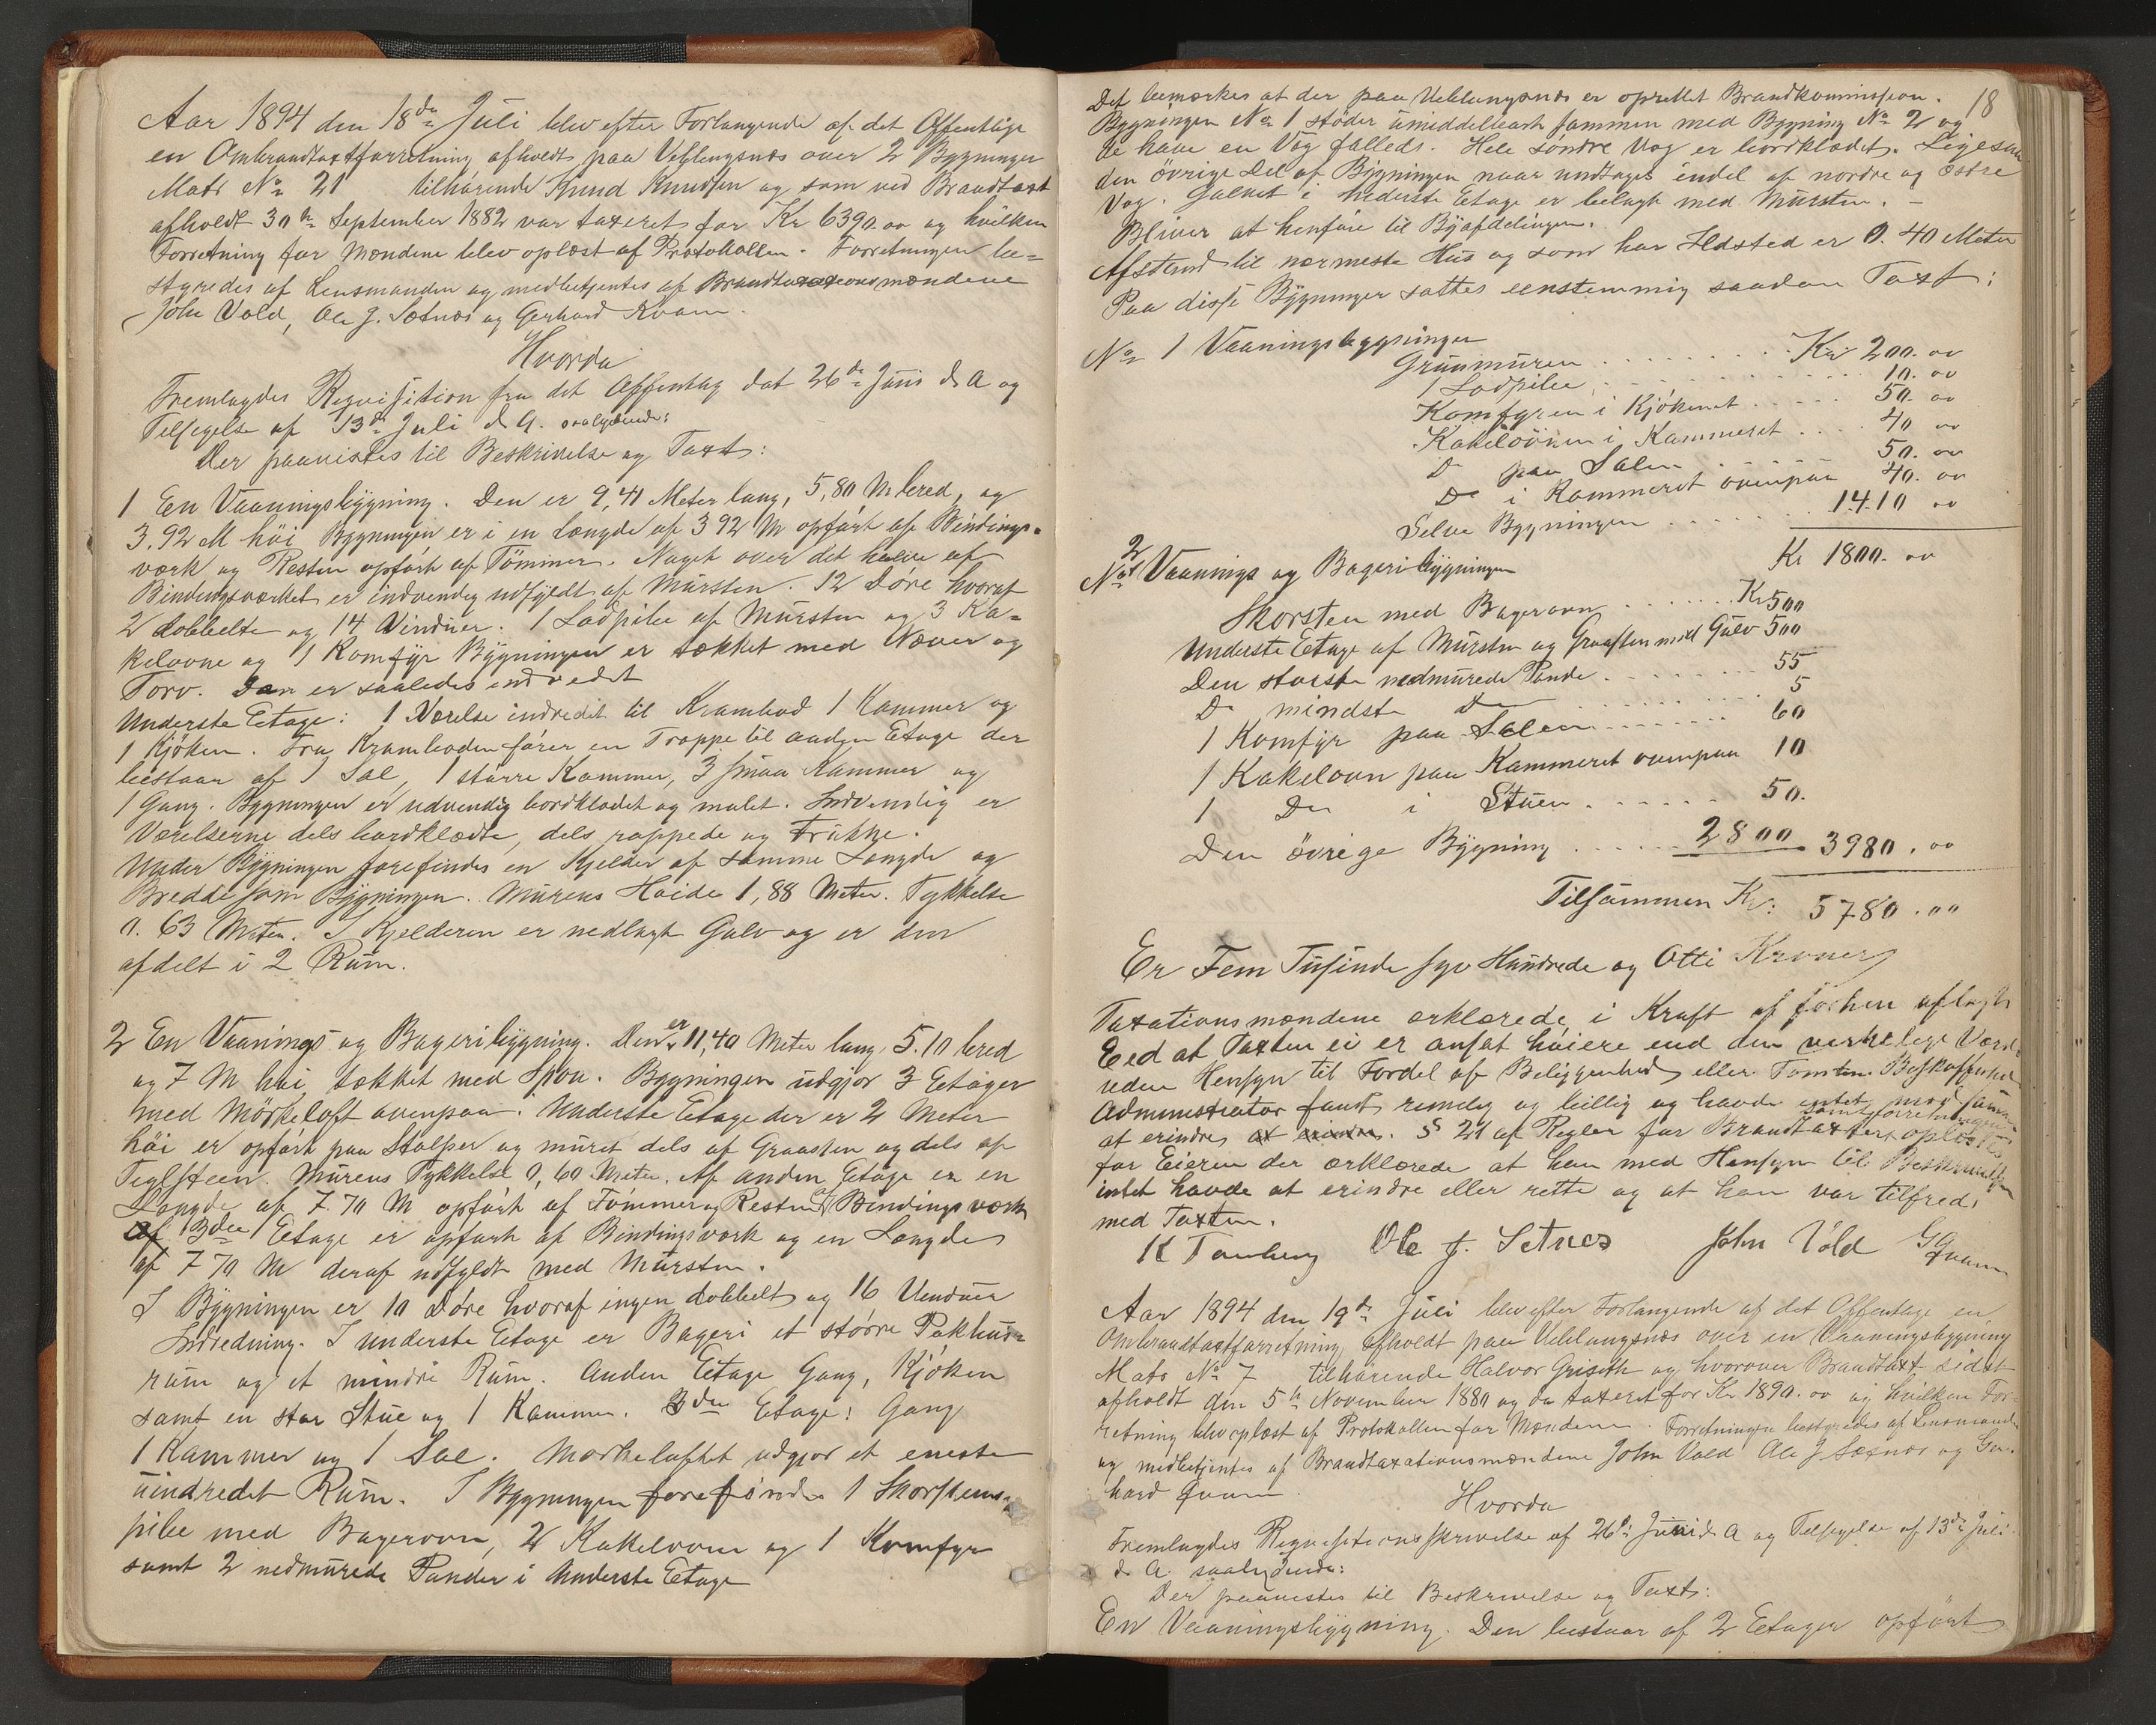 Aar 1894 den 18de Juli blev efter Forlangende af det Offentlige
en Ombrandtaxtforretning afholdt paa Veblungsnæs over 2 Bygninger
Matr No 21 tilhørende Knud Knudsen og som ved Brandtaxt
afholdt 30te September 1882 var taxeret for Kr 6390.00 og hvilken
Forretning for Mændene blev oplæst af Protokollen. Forretningen be=
styredes af Lensmanden og medbetjentes af Brandtaxationsmændene
John Vold, Ole J. Sætnæs og Gerhard Kvam.
Hvorda
Fremlagdes Requisition fra det Offentlig dat 26de Juni d. A og
Tilsigelse af 13de Juli d. A. saalydende:
Der paavistes til Beskrivelse og Taxt:
1 En Vaaningsbygning. Den er 9,41 Meter lang, 5,80 M bred, og
3.92 M høi Bygningen er i en Længde af 3 92 M opført af Bindings=
værk og Resten opført af Tømmer. Noget over det halve af
Bindingsværket er indvendig udfyldt af Mursten. 12 Døre hvoraf
2 dobbelte og 14 Vinduer. 1 Lodpibe af Mursten og 3 Ka=
kelovne og 1 Komfyr Bygningen er tækket med Næver og
Torv. Den er saaledes indredet
Underste Etage: 1 Værelse indredet til Krambod 1 Kammer og
1 Kjøken. Fra Kramboden fører en Trappe til anden Etage der
bestaar af 1 Sal, 1 større Kammer, 3 smaa Kammer og
1 Gang. Bygningen er udvendig bordklædt og malet. Indvendig er
Værelserne dels bordklædte, dels rappede og Trukne.
Under Bygningen forefindes en Kjelder af samme Længde og
Bredde som Bygningen. Murens Høide 1,88 Meter. Tykkelse
0. 63 Meter. I Kjelderen er nedlagt Gulv og er den
afdelt i 2 Rum.
2 En Vaanings og Bageribygning. Den er 11,40 Meter lang, 5.10 bred
og 7 M høi tækket med Spon. Bygningen udgjør 3 Etager
med Mørkeloft ovenpaa. Underste Etage der er 2 Meter
høi er opført paa Stolper og muret dels af Graasten og dels af
Teglsteen. Murens Tykkelse 0,60 Meter. Af anden Etage er en
Længde af 7.70 M opført af Tømmer og Resten af Bindingsværk
af 3die Etage er opført af Bindingsværk og en Længde
af 7 70 M deraf udfyldt med Mursten.
I Bygningen er 10 Døre hvoraf ingen dobbelt og 16 Vinduer
Indredning. I underste Etage er Bageri et større Pakhus=
rum og et mindre Rum. Anden Etage Gang, Kjøken
samt en stor Stue og 1 Kammer. 3die Etage: Gang
1 Kammer og 1 Sal. Mørkeloftet udgjør et eneste
uindredet Rum. I Bygningen forefindes 1 Skorstens=
pibe med Bagerovn, 2 Kakelovne og 1 Komfyr
samt 2 nedmurede Pander i Underste Etage
18
Det bemærkes at der paa Veblungsnæs er oprettet Brandkommission.
Bygningen No 1 støder umiddelbart sammen med Bygning No 2 og
de have en Væg fælleds. Hele søndre Væg er bordklædt. Ligesom
den øvrige Del af Bygningen naar undtages endel af nordre og østre
Væg. Gulvet i nederste Etage er belagt med Mursten. –
Bliver at henføre til Byafdelingen.
Afstand til nærmeste Hus og som har Ildsted er 0.40 Meter
Paa disse Bygninger sattes eenstemmig saadan Taxt:
No 1 Vaaningsbygningen
Grunmuren . . . . . . . . Kr 200. 00
1 Lodpibe . . . . . . . . 10. 00
Komfyren i Kjøkenet . . . . . 50. 00
Kakelovnen i Kammeret . . . . 40 00
Do paa Salen . . . . 50. 00
Do i Kammeret ovenpaa 40. 00
Selve Bygningen . . . . . . 1410 00
Kr 1800. 00
No 2 Vaanings og Bageribygningen
Skorsten med Bagerovn . . . . . . Kr 500
Underste Etage af Mursten og Graasten med Gulv 500
Den største nedmurede Pande . . . . . . . 55
Do mindste Do . . . . . . . 5
1 Komfyr paa Salen . . . . . . . 60
1 Kakelovn paa Kammeret ovenpaa 10
1 Do i Stuen . . . . . . 50.
Den øvrige Bygning . . . . . . 2800 3980.00
Tilsammen Kr: 5780.00
Er Fem Tusinde syv Hundrede og Otti Kroner
Taxationsmændene erklærede i Kraft af forhen aflagt
Eed at Taxten ei er ansat høiere end den virkelige Værdi
uden Hensyn til Fordel af Beliggenhed eller Tomten. Beskaffenhed
Administrator fandt rimelig og billig og havde intet mod samme
at erindre at erindre. § 21 af Regler for Brandtaxter oplæstes
for Eieren der erklærede at han med Hensyn til Beskrivelsen
intet havde at erindre eller rette og at han var tilfreds
med Taxten.
K Tomberg Ole J. Setnes John Vold GQ Quam
Aar 1894 den 19de Juli blev efter Forlangende af det Offentlige en
Ombrandtaxtforretning afholdt paa Veblungsnæs over en Vaaningsbygning
Matr No 7 tilhørende Halvor Griseth og hvorover Brandtaxt sidst
afholdt den 5te November 1880 og da taxeret for Kr 1890.00 og hvilken For=
retning blev oplæst af Protokollen for Mændene. Forretningen bestyredes af Lensmanden
og medbetjentes af Brandtaxationsmændene John Vold Ole J Sætnæs og Ger=
hard Quam
Hvorda
Fremlagdes Requisitionsskrivelse af 26de Juni d. A og Tilsigelse af 13de Juli
d. A. saalydende:
Der paavistes til Beskrivelse og Taxt:
En Vaaningsbygning. Den bestaar af 2 Etager opført